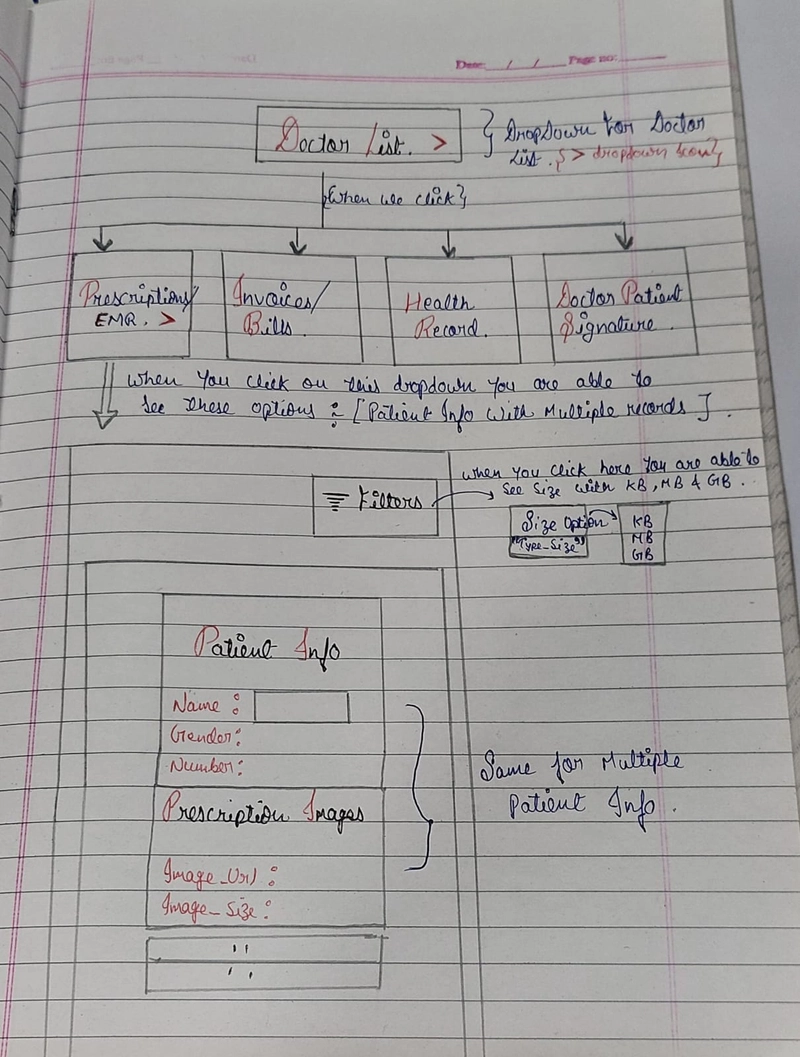 Date: / / Page no:
Doctor List. >
} DropDown for Doctor
List. { > dropdown Icon}
{When we click}
Prescriptions/
EMR. >
Invoices/
Bills.
Health
Record.
Doctor Patient
Signature.
when you click on this dropdown you are able to
See these options :- [Patient Info with Multiple records].
when you click here you are able to
see size with KB, MB & GB.
Filters
Size Option
"Type_Size"
KB
MB
GB
Patient Info
Name :
Gender:
Number:
Same for Multiple
Patient Info.
Prescription Images
Image_Url :
Image_Size :